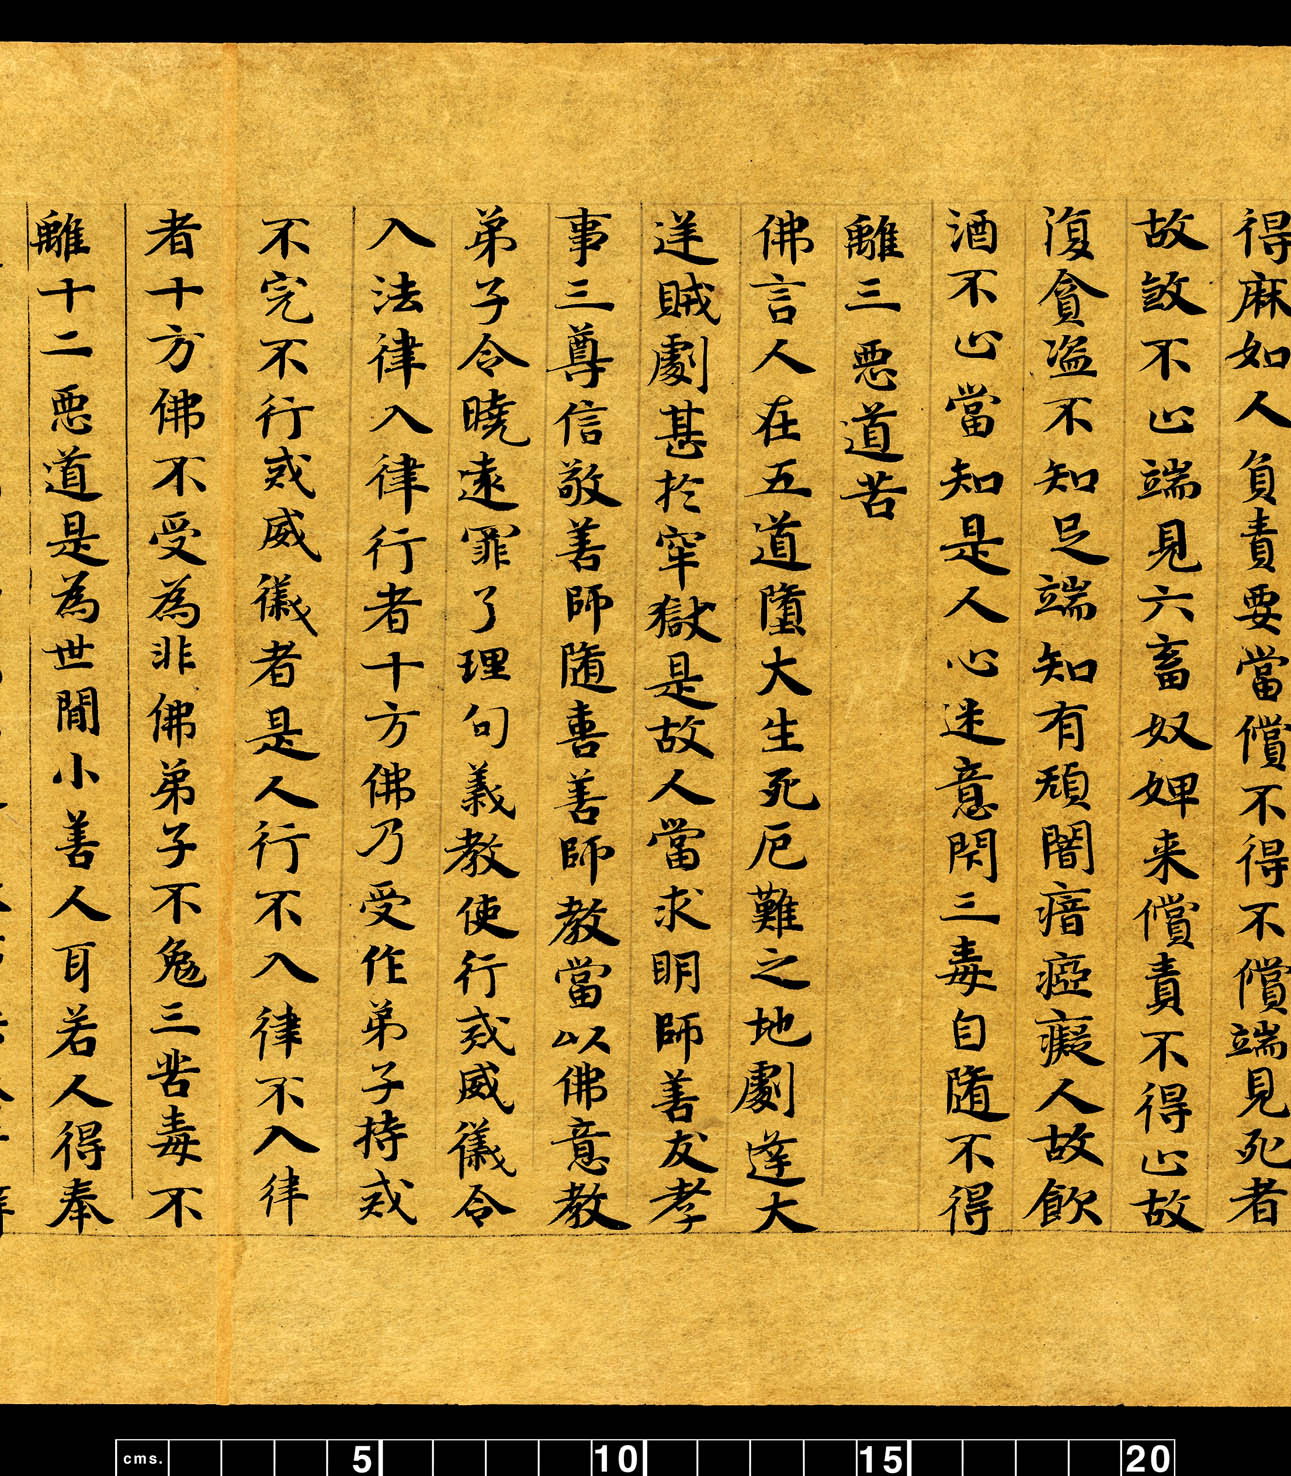 得麻如人負責要當償不得不償端見死者
故斂不止端見六畜奴婢来償責不得止故
復貪盗不知足端知有頑闇瘖瘂癡人故飲
酒不止當知是人心迷意閇三毒自隨不得
離三惡道苦
佛言人在五道墮大生死厄難之地劇逢大
逆賊劇甚於牢獄是故人當求明師善友孝
事三尊信敬善師隨憙善師教當以佛意教
弟子令曉遠罪了理句義教使行戒威儀令
入法律入律行者十方佛乃受作弟子持戒
不完不行戒威儀者是人行不入律不入律
者十方佛不受為非佛弟子不免三苦毒不
離十二惡道是為世間小善人耳若人得奉
cms. 5 10 15 20